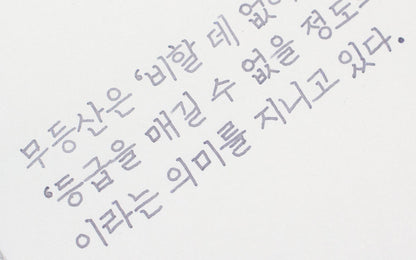 무등산은 ‘비할 데
‘등급을 매길 수 없을 정도
이라는 의미를 지니고 있다.